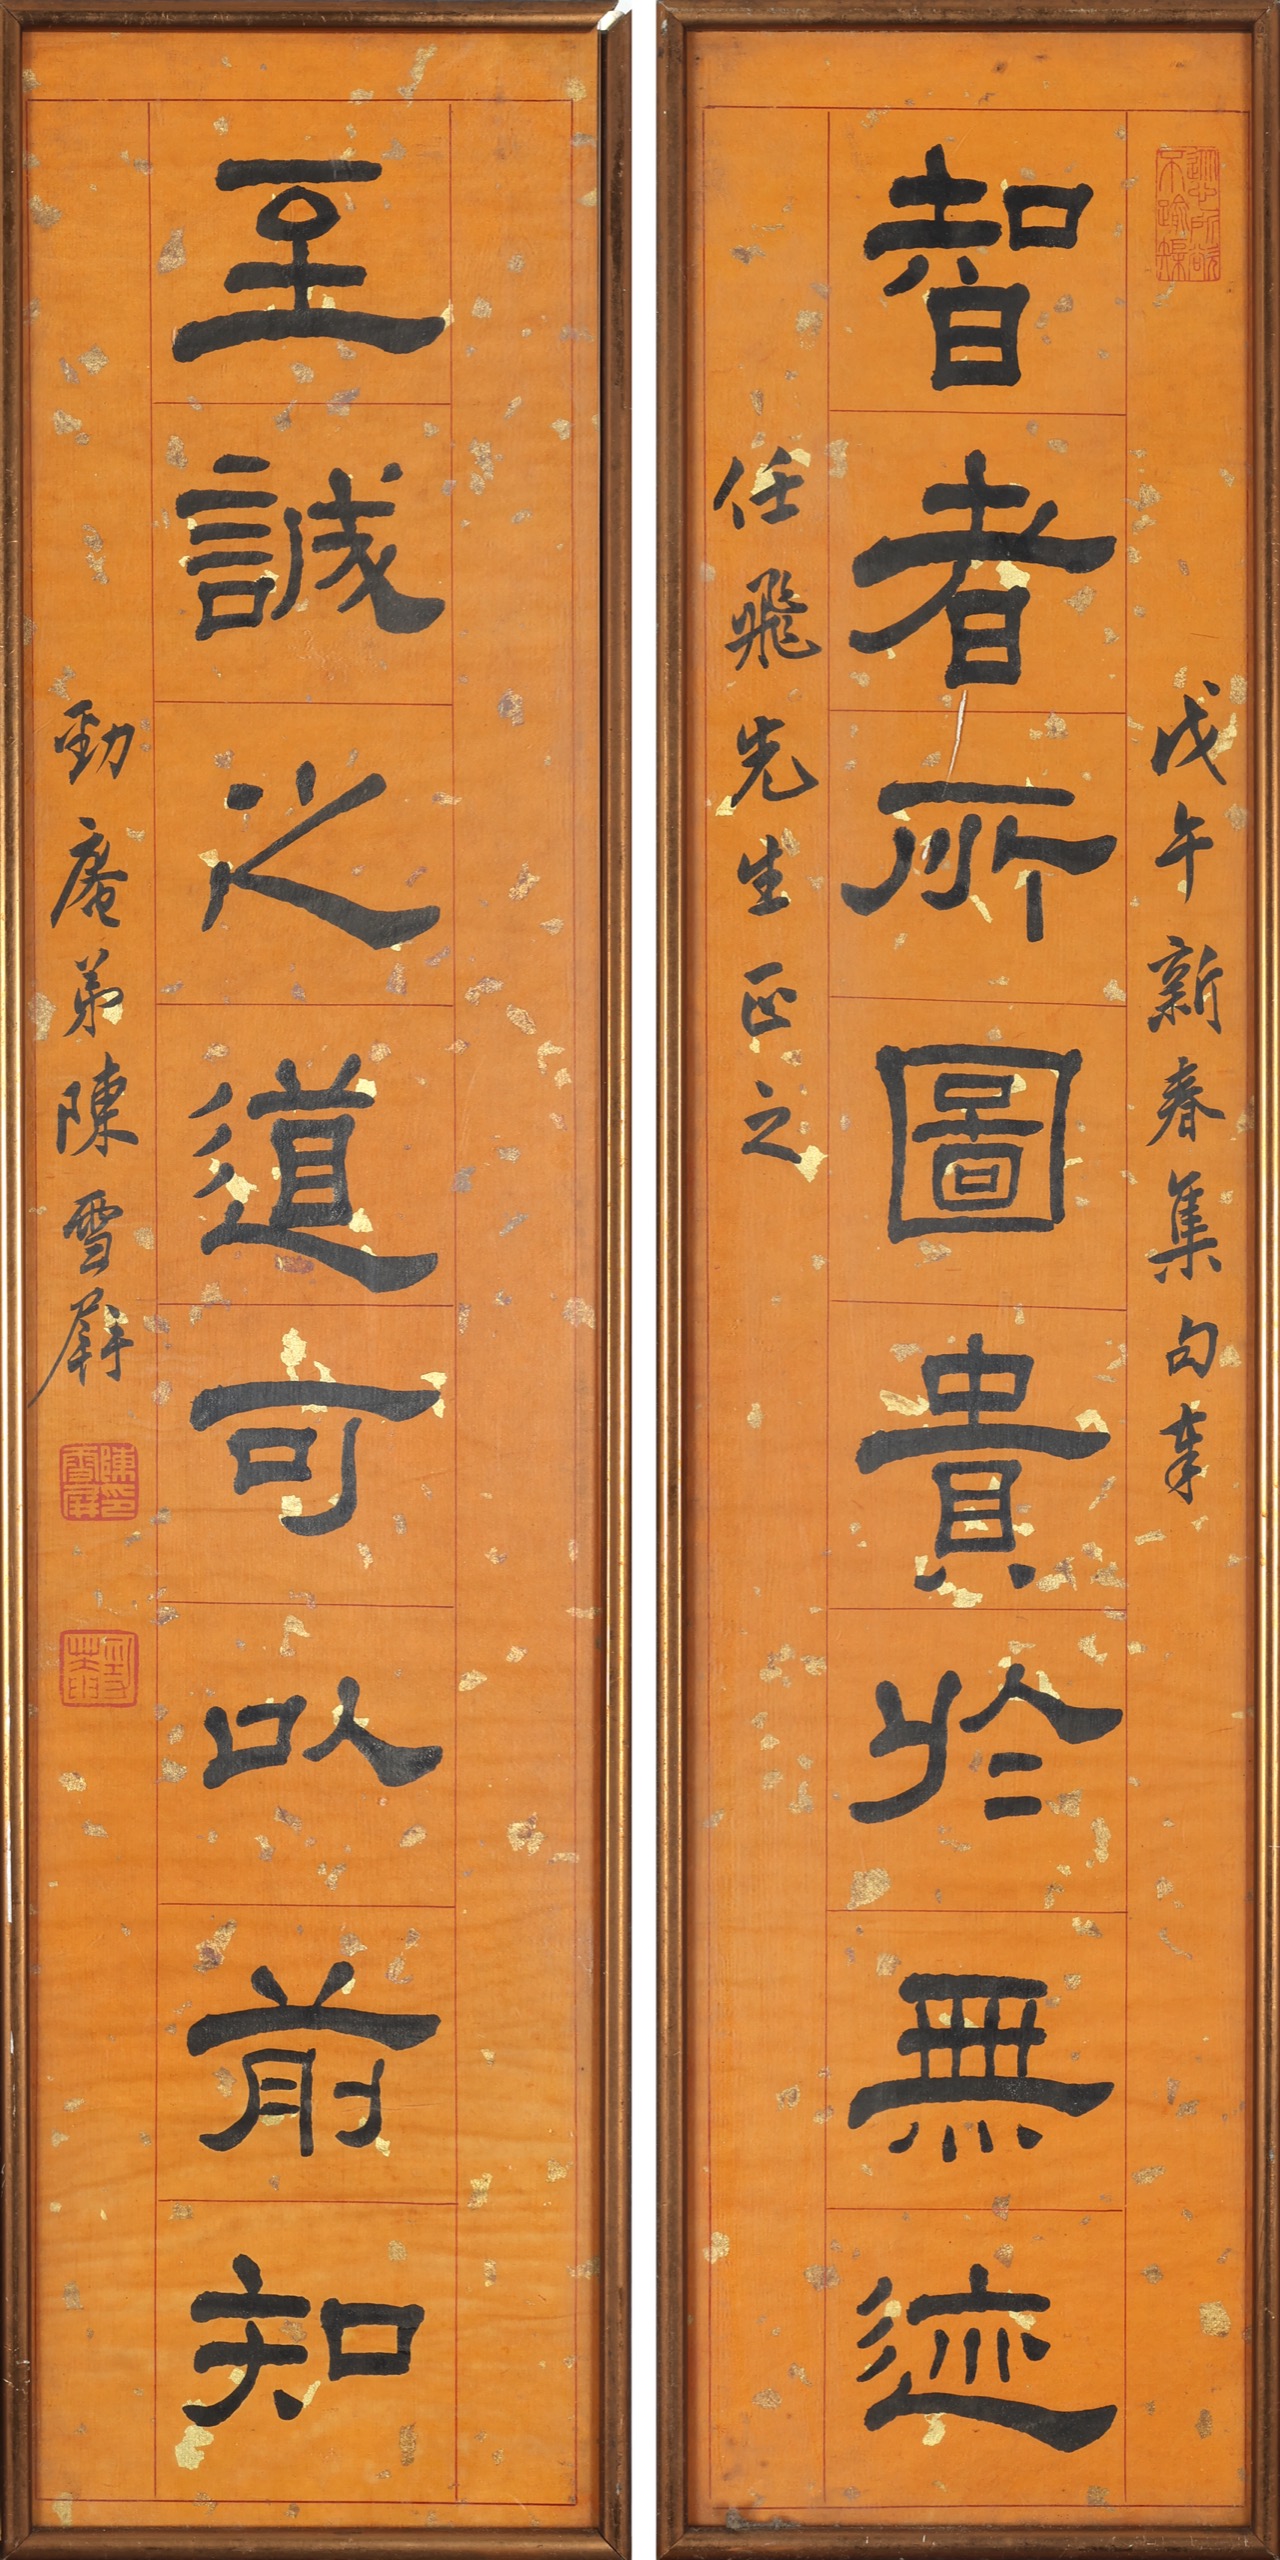 從心所欲不踰矩
戊午新春集句奉
智者所圖貴於無迹
任飛先生正之
至誠之道可以前知
勁庵弟陳雪屏
陳印雪屏